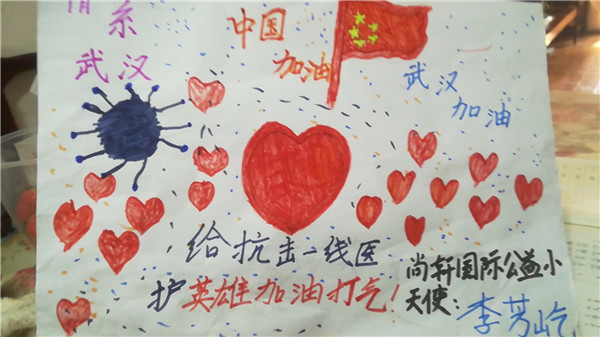 情系
武汉
中国
加油
武汉
加油
给抗击一线医
护英雄加油打气！
尚轩国际公益小
天使：李芳屹